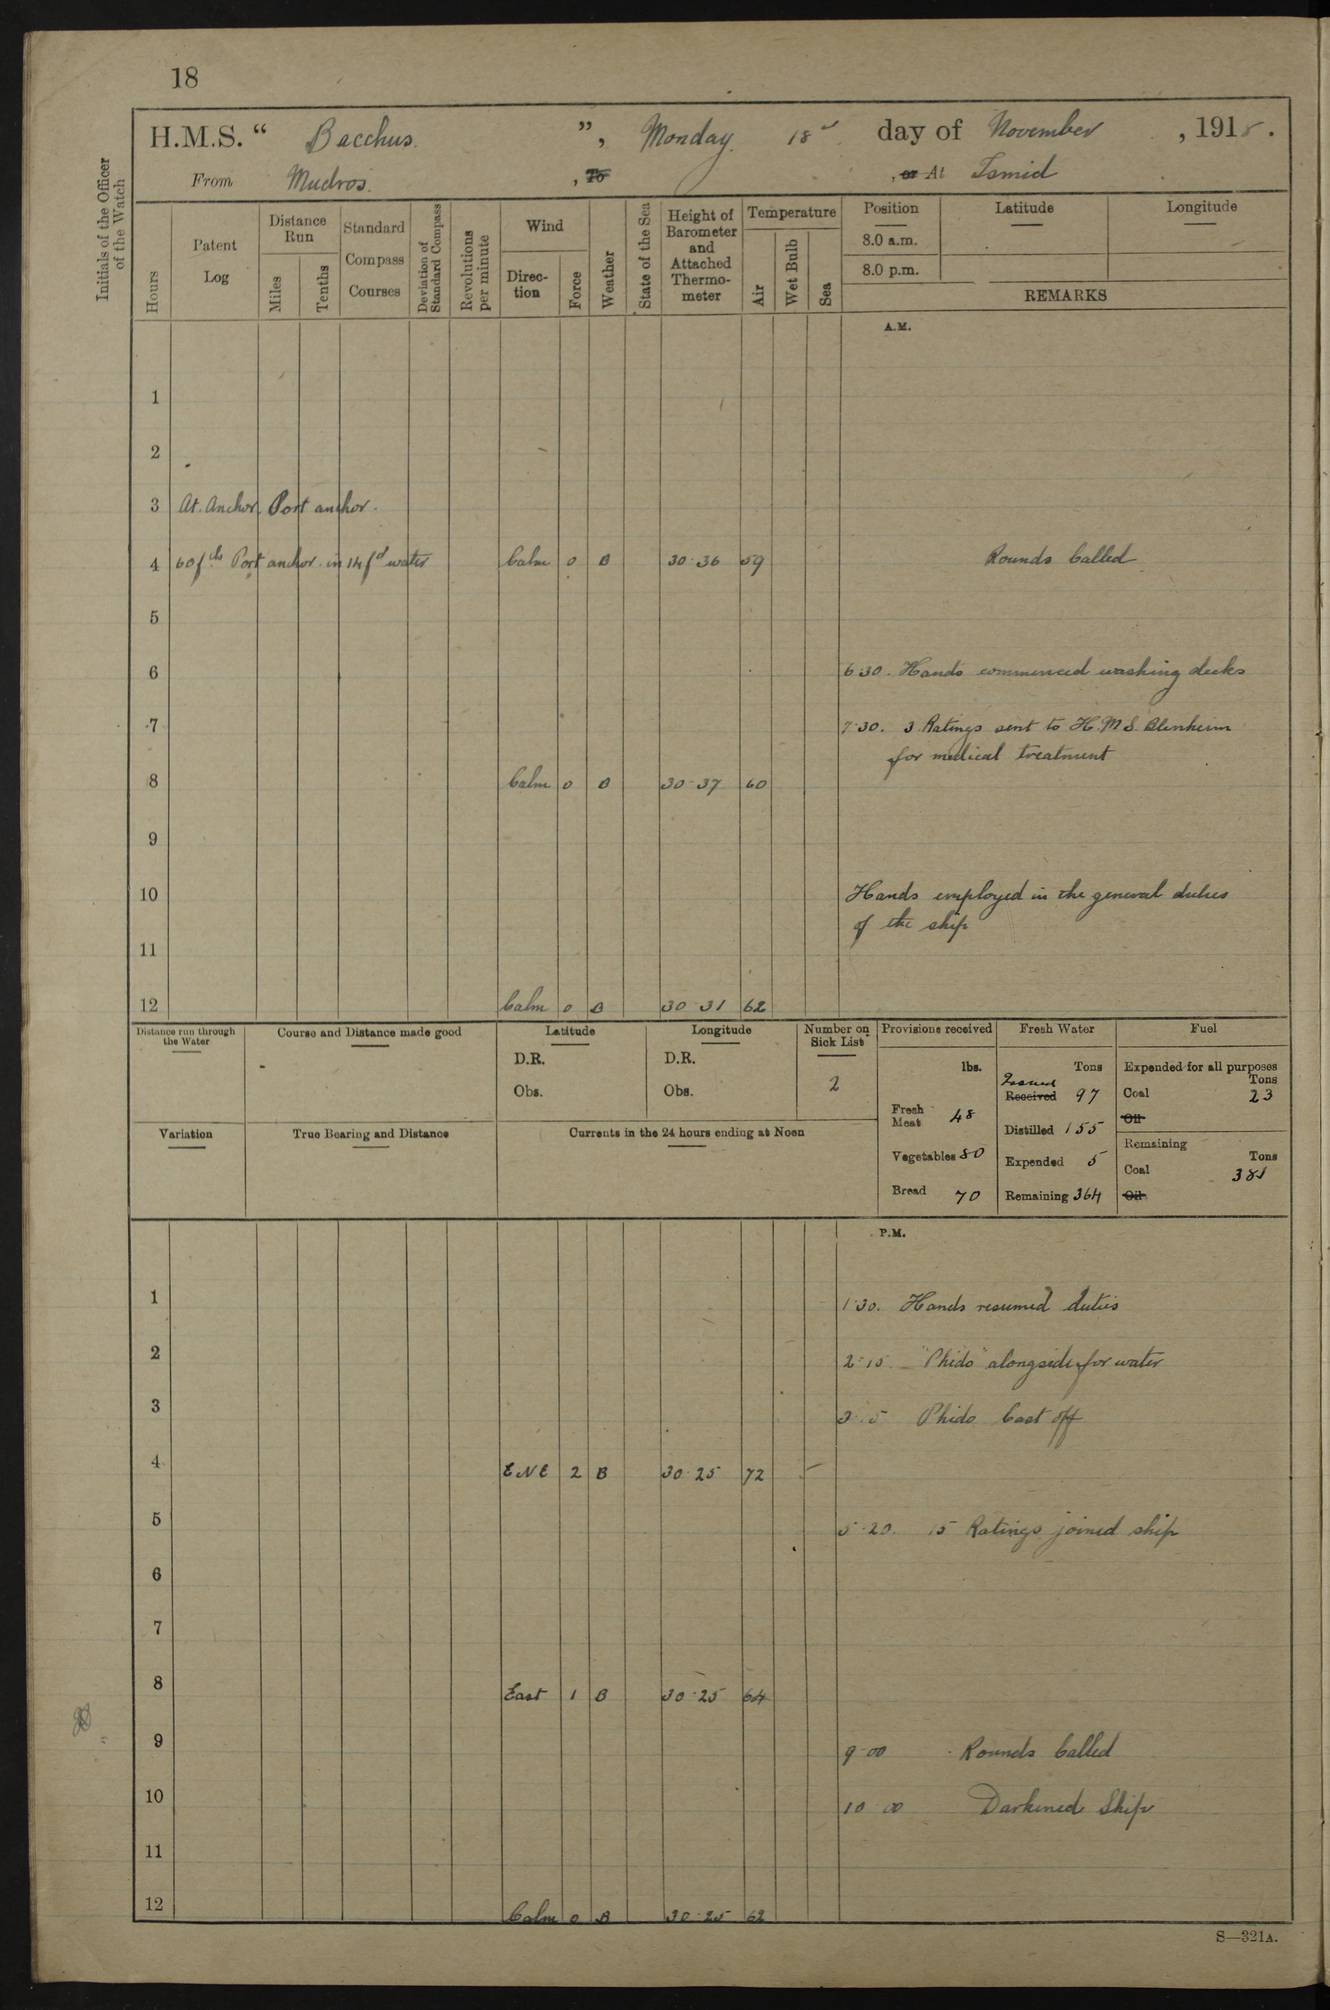 18
H.M.S. “ Bacchus ”, Monday 18th day of November, 1918.
From Mudros, To , or At Ismid
Initials of the Officer
of the Watch
Hours
Patent
Log
Distance
Run
Miles
Tenths
Standard
Compass
Courses
Deviation of
Standard Compass
Revolutions
per minute
Wind
Direc-
tion
Force
Weather
State of the Sea
Height of
Barometer
and
Attached
Thermo-
meter
Temperature
Air
Wet Bulb
Sea
Position
8.0 a.m.
8.0 p.m.
Latitude
Longitude
REMARKS
A.M.
1
2
3 At Anchor. Port anchor.
4 60 fths Port anchor in 14 fd water Calm 0 B 30·36 59 Rounds Called
5
6 6·30. Hands commenced washing decks
7 7·30. 3 Ratings sent to H.M.S. Blenheim
for medical treatment
8 Calm 0 B 30·37 60
9
10 Hands employed in the general duties
of the ship
11
12 Calm 0 B 30·31 62
Distance run through
the Water
Course and Distance made good
Latitude
D.R.
Obs.
Longitude
D.R.
Obs.
Number on
Sick List
2
Provisions received
lbs.
Fresh
Meat 48
Vegetables 80
Bread 70
Fresh Water
Tons
Issued
Received 97
Distilled 155
Expended 5
Remaining 364
Fuel
Expended for all purposes
Tons
Coal 23
Oil
Remaining
Tons
Coal 381
Oil
Variation
True Bearing and Distance
Currents in the 24 hours ending at Noon
P.M.
1 1·30. Hands resumed duties
2 2·15 "Phido" alongside for water
3 3·15 Phido Cast off
4 ENE 2 B 30·25 72
5 5·20. 15 Ratings joined ship
6
7
8 East 1 B 30·25 64
9 9·00 Rounds Called
10 10·00 Darkened Ship
11
12 Calm 0 B 30·25 62
S—321A.